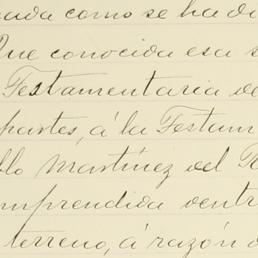 nada como se ha di
Que conocida esa s
Testamentaria de
partes, á la Testam
blo Martínez del R
omprendida dentr
terreno, á razón d